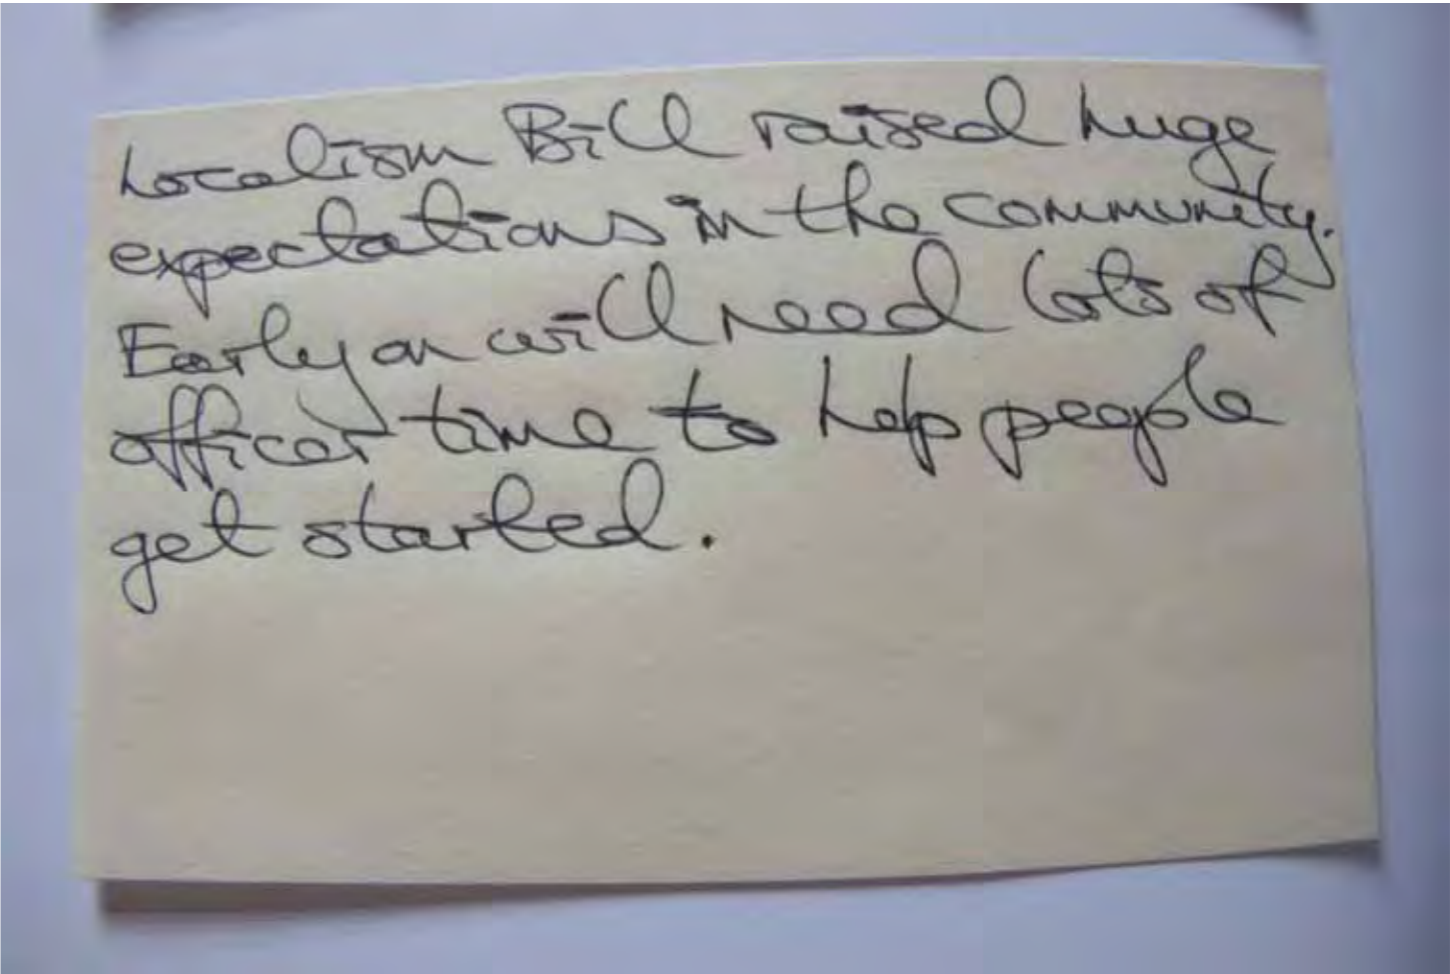 Localism Bill raised huge
expectations in the community.
Early on will need lots of
officer time to help people
get started.